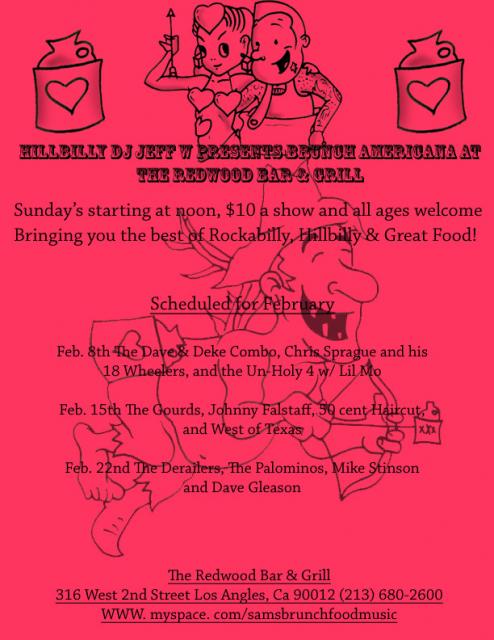 HILLBILLY DJ JEFF W PRESENTS BRUNCH AMERICANA AT
THE REDWOOD BAR & GRILL
Sunday's starting at noon, $10 a show and all ages welcome
Bringing you the best of Rockabilly, Hillbilly & Great Food!
Scheduled for February
Feb. 8th The Dave & Deke Combo, Chris Sprague and his
18 Wheelers, and the Un-Holy 4 w/ Lil Mo
Feb. 15th The Gourds, Johnny Falstaff, 50 cent Haircut,
and West of Texas
XXX
Feb. 22nd The Derailers, The Palominos, Mike Stinson
and Dave Gleason
The Redwood Bar & Grill
316 West 2nd Street Los Angles, Ca 90012 (213) 680-2600
WWW. myspace. com/samsbrunchfoodmusic